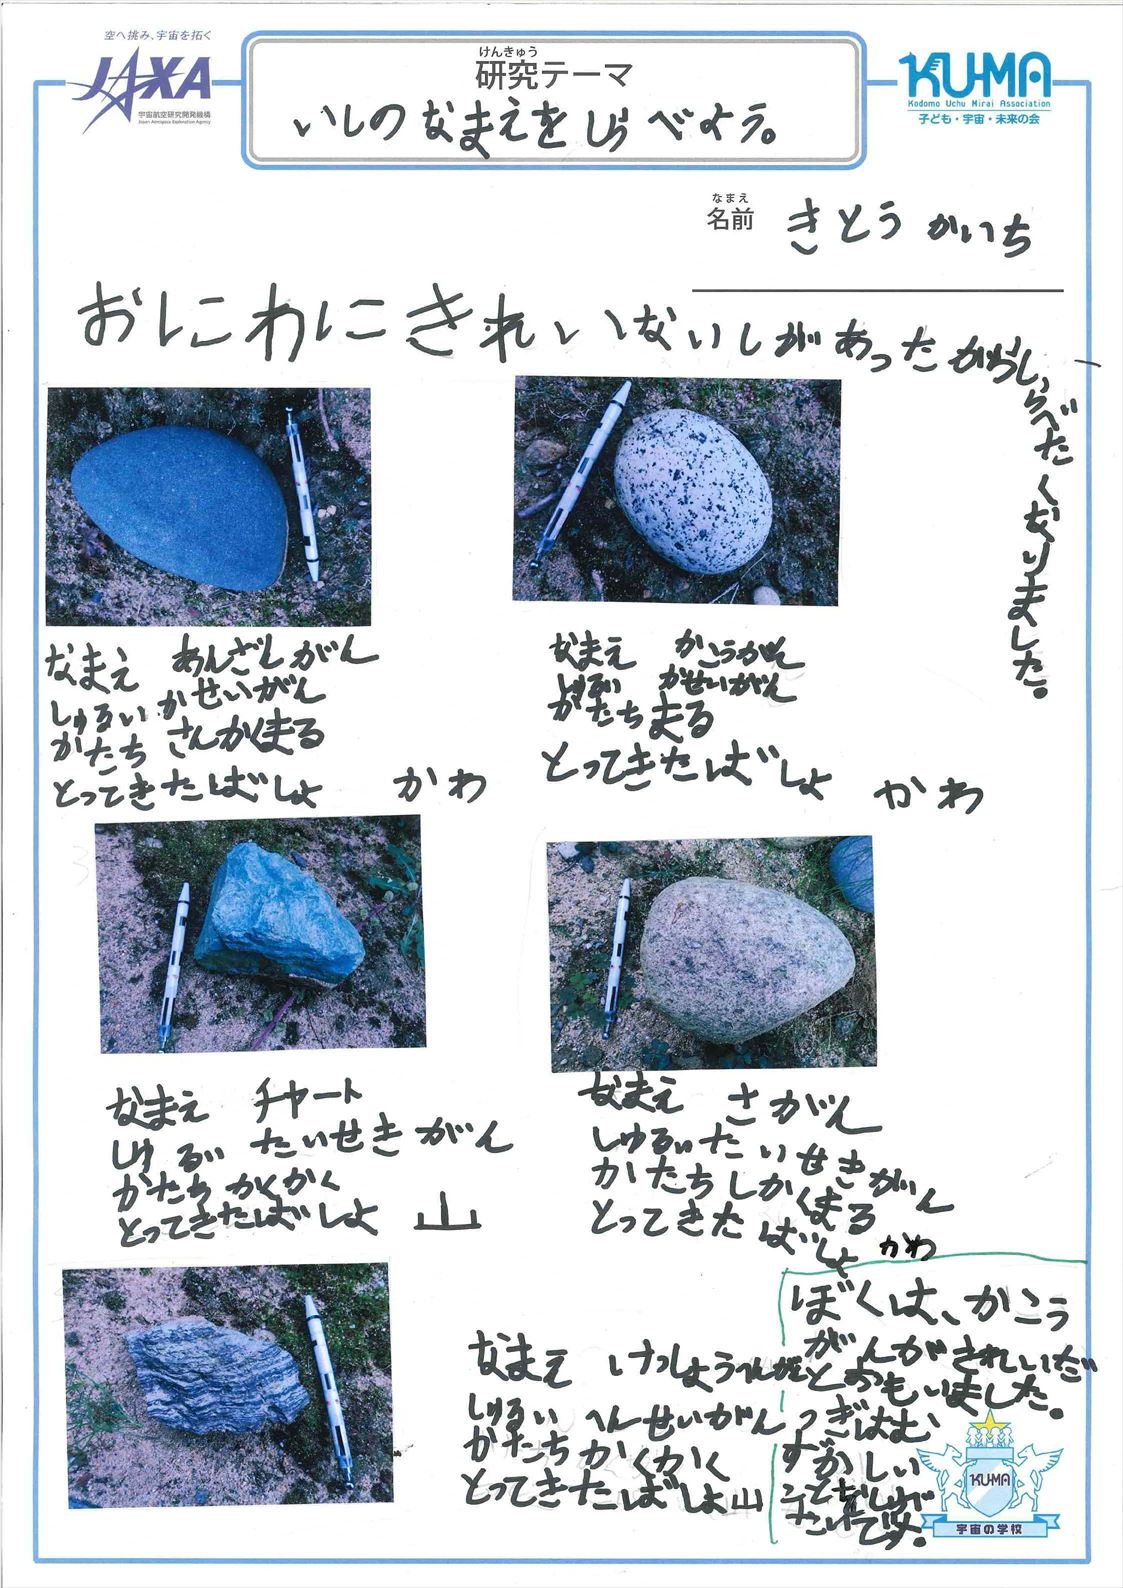 空へ挑み、宇宙を拓く
JAXA
宇宙航空研究開発機構
Japan Aerospace Exploration Agency
けんきゅう
研究テーマ
いしのなまえをしらべよう。
KU-MA
Kodomo Uchu Mirai Association
子ども・宇宙・未来の会
なまえ
名前 きとう かいち
おにわにきれいないしがあったからしらべたくなりました。
なまえ あんざんがん
しゅるい かせいがん
かたち さんかくまる
とってきたばしょ かわ
なまえ かこうがん
しゅるい かせいがん
かたち まる
とってきたばしょ かわ
なまえ チャート
しゅるい たいせきがん
かたち かくかく
とってきたばしょ 山
なまえ さがん
しゅるい たいせきがん
かたち しかくまる
とってきたばしょ かわ
なまえ けっしょうへんがん
しゅるい へんせいがん
かたち かくかく
とってきたばしょ 山
ぼくは、かこう
がんがきれいだ
とおもいました。
つぎはむ
ずかしい
KUMA
宇宙の学校